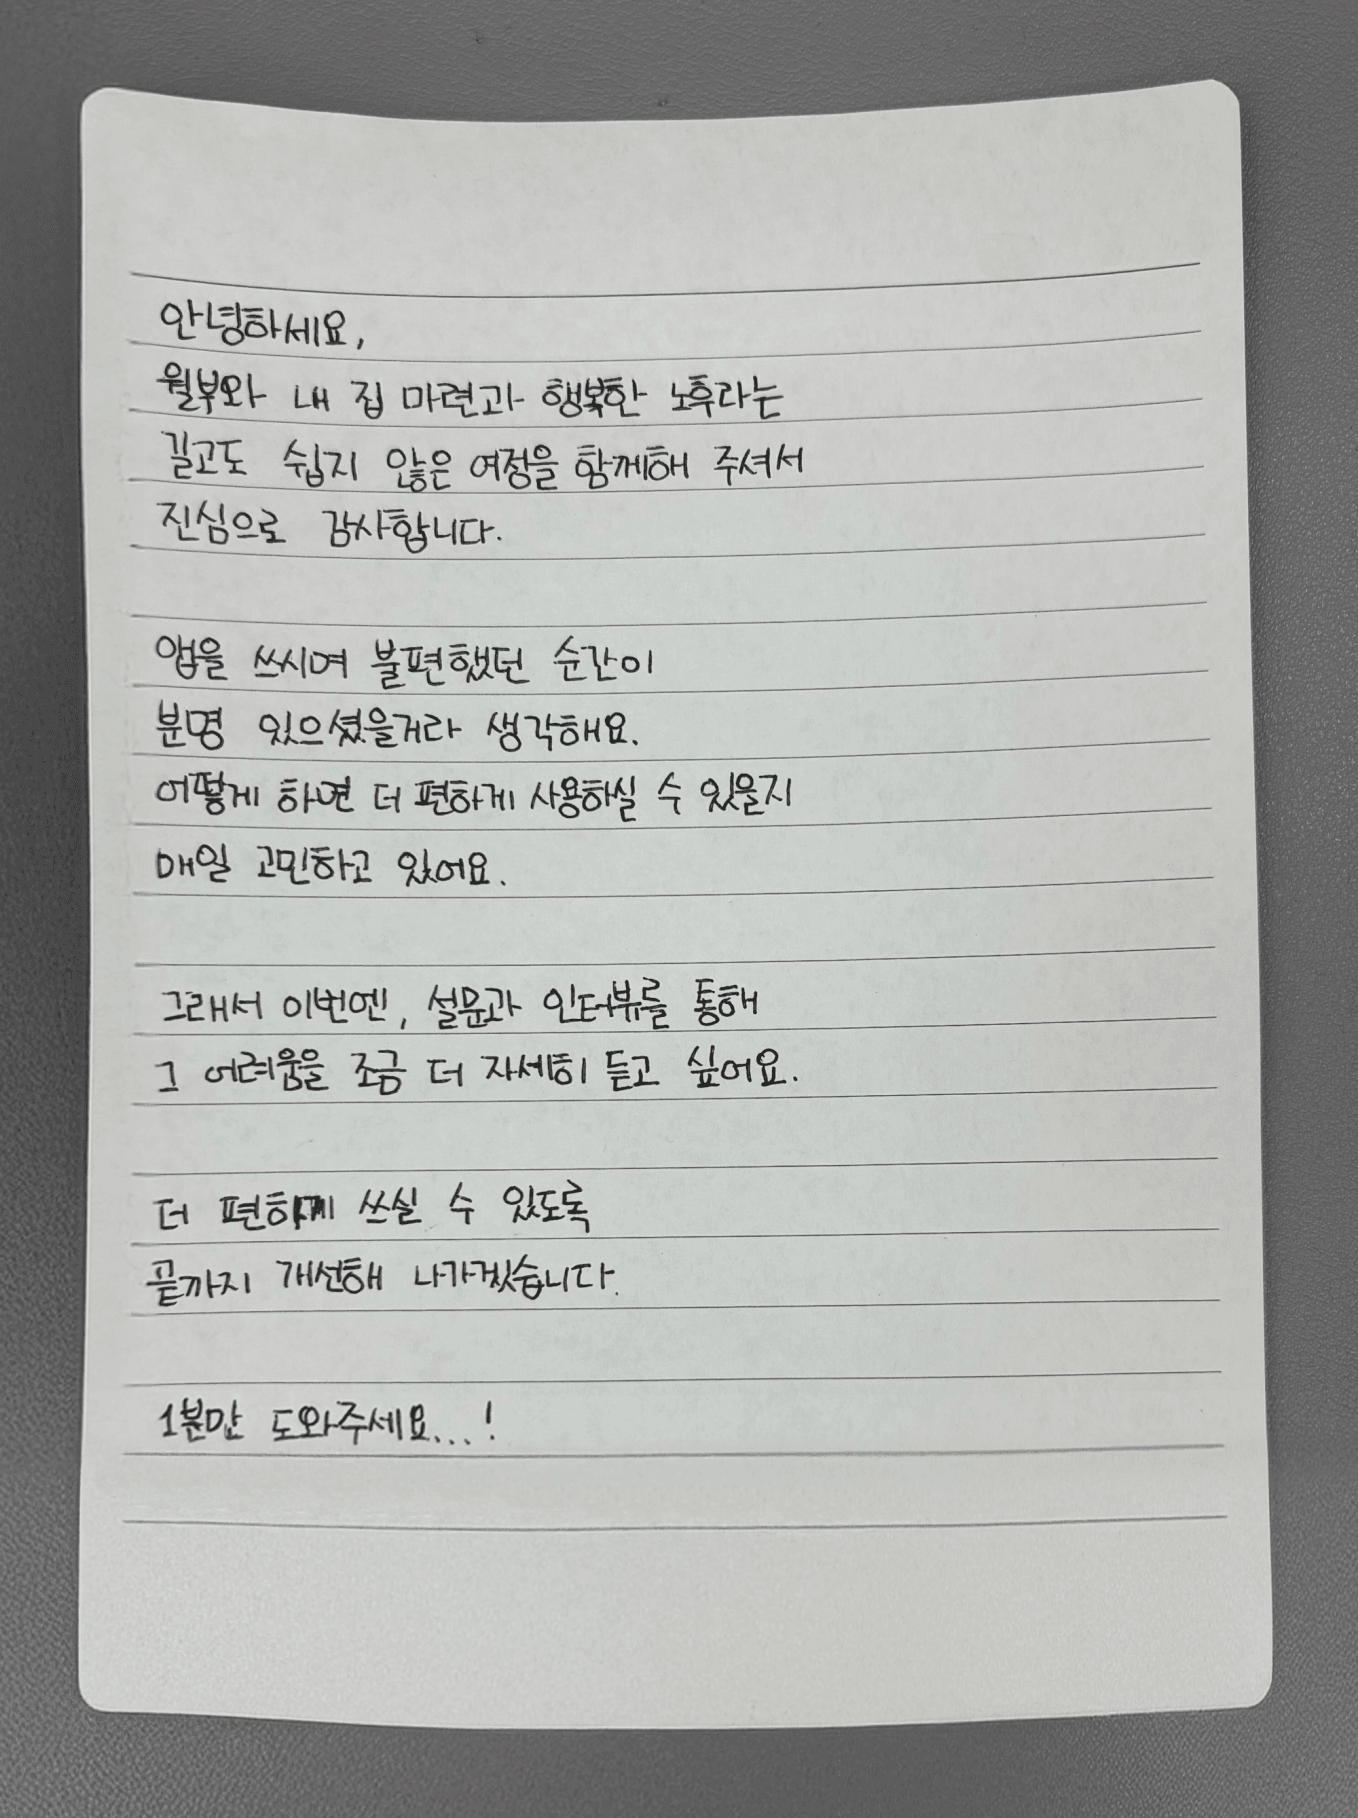 안녕하세요,
월부와 내 집 마련과 행복한 노후라는
길고도 쉽지 않은 여정을 함께해 주셔서
진심으로 감사합니다.
앱을 쓰시며 불편했던 순간이
분명 있으셨을거라 생각해요.
어떻게 하면 더 편하게 사용하실 수 있을지
매일 고민하고 있어요.
그래서 이번엔, 설문과 인터뷰를 통해
그 어려움을 조금 더 자세히 듣고 싶어요.
더 편하게 쓰실 수 있도록
끝까지 개선해 나가겠습니다.
1분만 도와주세요...!